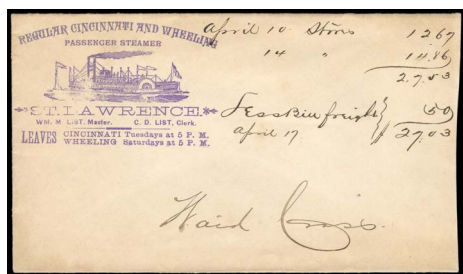 REGULAR CINCINNATI AND WHEELING
PASSENGER STEAMER
ST. LAWRENCE.
WM. M. LIST, Master. C. D. LIST, Clerk.
LEAVES CINCINNATI Tuesdays at 5 P. M.
WHEELING Saturdays at 5 P. M.
April 10 Stores 12 67
14 " 14.86
27.53
Less Bill freight 50
April 17 27.03